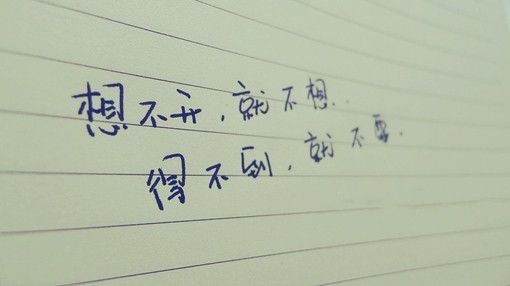 想不开，就不想．．
得不到，就不要．